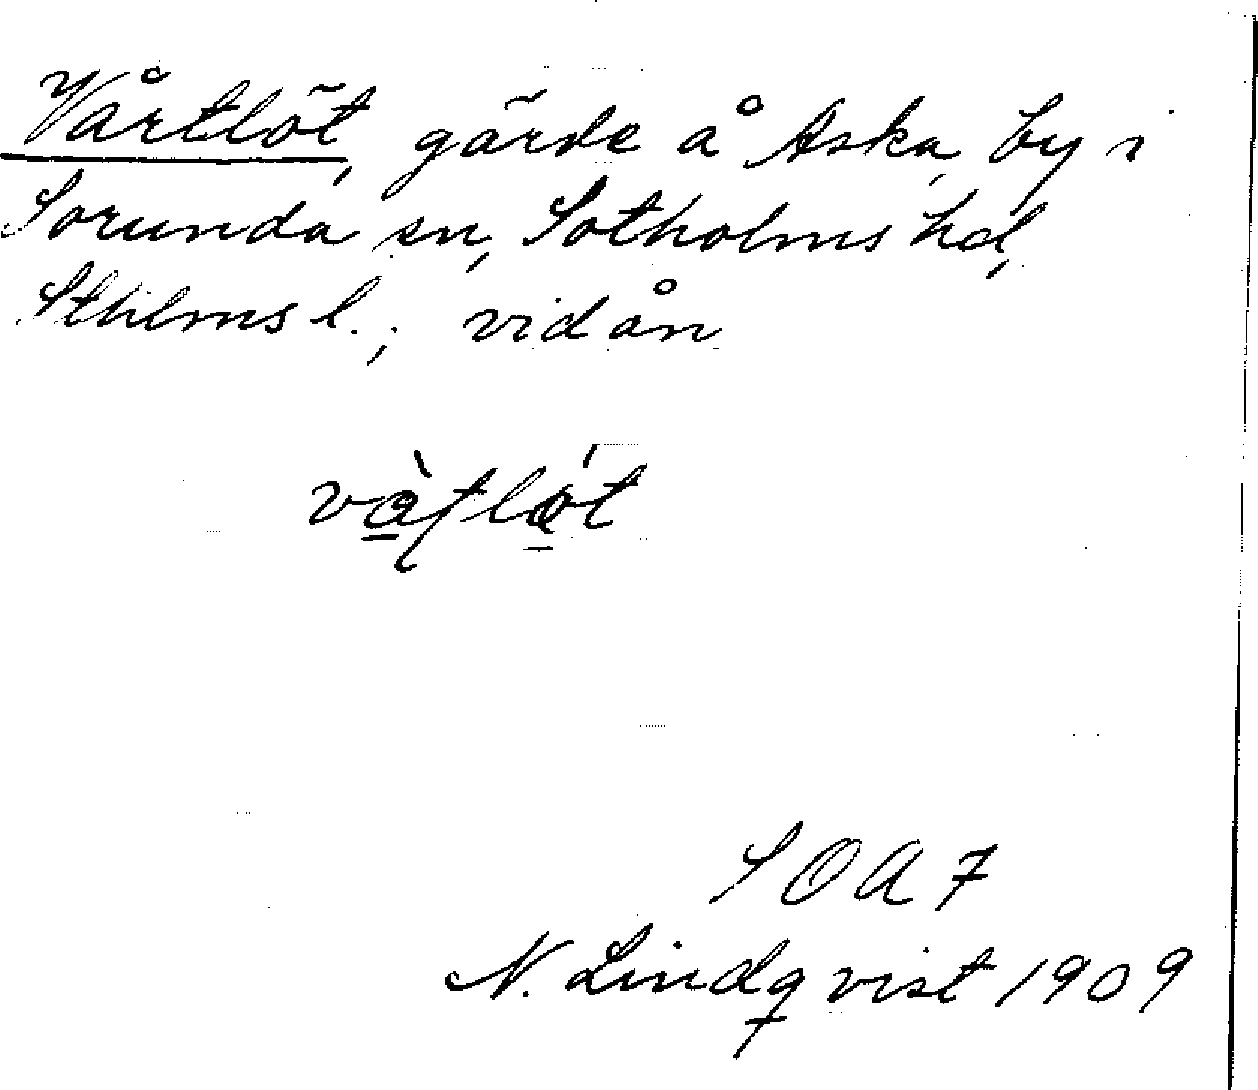 Vårtlöt, gärde å Aska by i
Sorunda sn, Sotholms hd,
Sthlms l.; vid ån
SOA 7
N. Lindqvist 1909